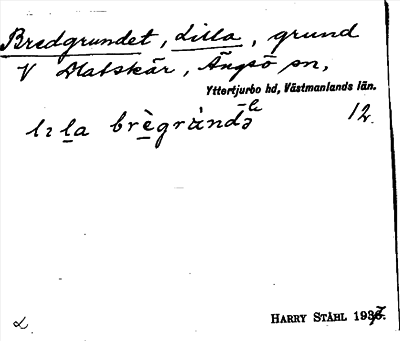 Bredgrundet, Lilla, grund
V Alatskär, Ängsö sn,
Yttertjurbo hd, Västmanlands län.
lɪla brègrùndə 12.
HARRY STÅHL 1937.